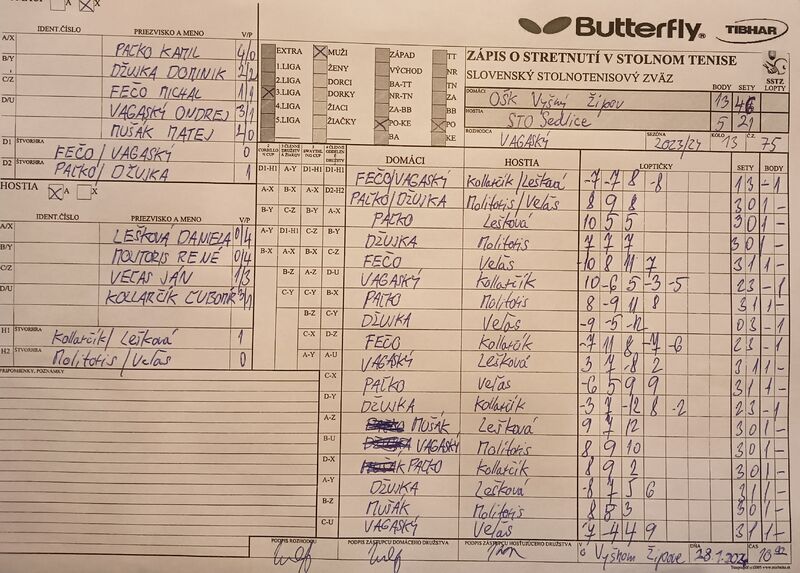 Butterfly
TIBHAR
ZÁPIS O STRETNUTÍ V STOLNOM TENISE
SLOVENSKÝ STOLNOTENISOVÝ ZVÄZ
SSTZ
BODY SETY LOPTY
DOMÁCI OŠK Vyšný Žipov 13 46
HOSTIA STO Sedlice 5 21
ROZHODCA VAGASKÝ SEZÓNA 2023/24 KOLO 13 Č. 75
EXTRA MUŽI ZÁPAD TT
1.LIGA ŽENY VÝCHOD NR
2.LIGA DORCI BA-TT TN
3.LIGA DORKY NR-TN ZA
4.LIGA ŽIACI ZA-BB BB
5.LIGA ŽIAČKY PO-KE PO
BA KE
IDENT.ČÍSLO PRIEZVISKO A MENO V/P
A/X PAĽKO KAMIL 4/0
B/Y DŽUJKA DOMINIK 2/2
C/Z FEČO MICHAL 1/1
D/U VAGASKÝ ONDREJ 3/1
MUŠÁK MATEJ 2/0
D1 ŠTVORHRA FEČO/VAGASKÝ 0
D2 PAĽKO/DŽUJKA 1
HOSTIA A X
IDENT.ČÍSLO PRIEZVISKO A MENO V/P
A/X LEŠKOVÁ DANIELA 0/4
B/Y MOLITORIS RENÉ 0/4
C/Z VEĽAS JÁN 1/3
D/U KOLLARČÍK ĽUBOMÍR 3/1
H1 ŠTVORHRA Kollarčík/Lešková 1
H2 ŠTVORHRA Molitoris/Veľas 0
PRIPOMIENKY, POZNÁMKY
DOMÁCI HOSTIA LOPTIČKY SETY BODY
FEČO/VAGASKÝ Kollarčík/Lešková -7 -7 8 -8 1 3 - 1
PAĽKO/DŽUJKA Molitoris/Veľas 8 9 8 3 0 1 -
PAĽKO Lešková 10 5 5 3 0 1 -
DŽUJKA Molitoris 7 7 7 3 0 1 -
FEČO Veľas -10 8 11 7 3 1 1 -
VAGASKÝ Kollarčík 10 -6 5 -3 -5 2 3 - 1
PAĽKO Molitoris 8 -9 11 8 3 1 1 -
DŽUJKA Veľas -9 -5 -12 0 3 - 1
FEČO Kollarčík -7 11 8 -7 -6 2 3 - 1
VAGASKÝ Lešková 3 7 -8 2 3 1 1 -
PAĽKO Veľas -6 5 9 9 3 1 1 -
DŽUJKA Kollarčík -3 7 -12 8 -2 2 3 - 1
MUŠÁK Lešková 9 7 12 3 0 1 -
VAGASKÝ Molitoris 8 9 10 3 0 1 -
PAĽKO Kollarčík 8 9 2 3 0 1 -
DŽUJKA Lešková -8 7 5 6 3 1 1 -
MUŠÁK Molitoris 8 8 3 3 0 1 -
VAGASKÝ Veľas 7 -4 4 9 3 1 1 -
PODPIS ROZHODCU PODPIS ZÁSTUPCU DOMÁCEHO DRUŽSTVA PODPIS ZÁSTUPCU HOSŤUJÚCEHO DRUŽSTVA
V Vyšnom Žipove DŇA 28.1. ČAS